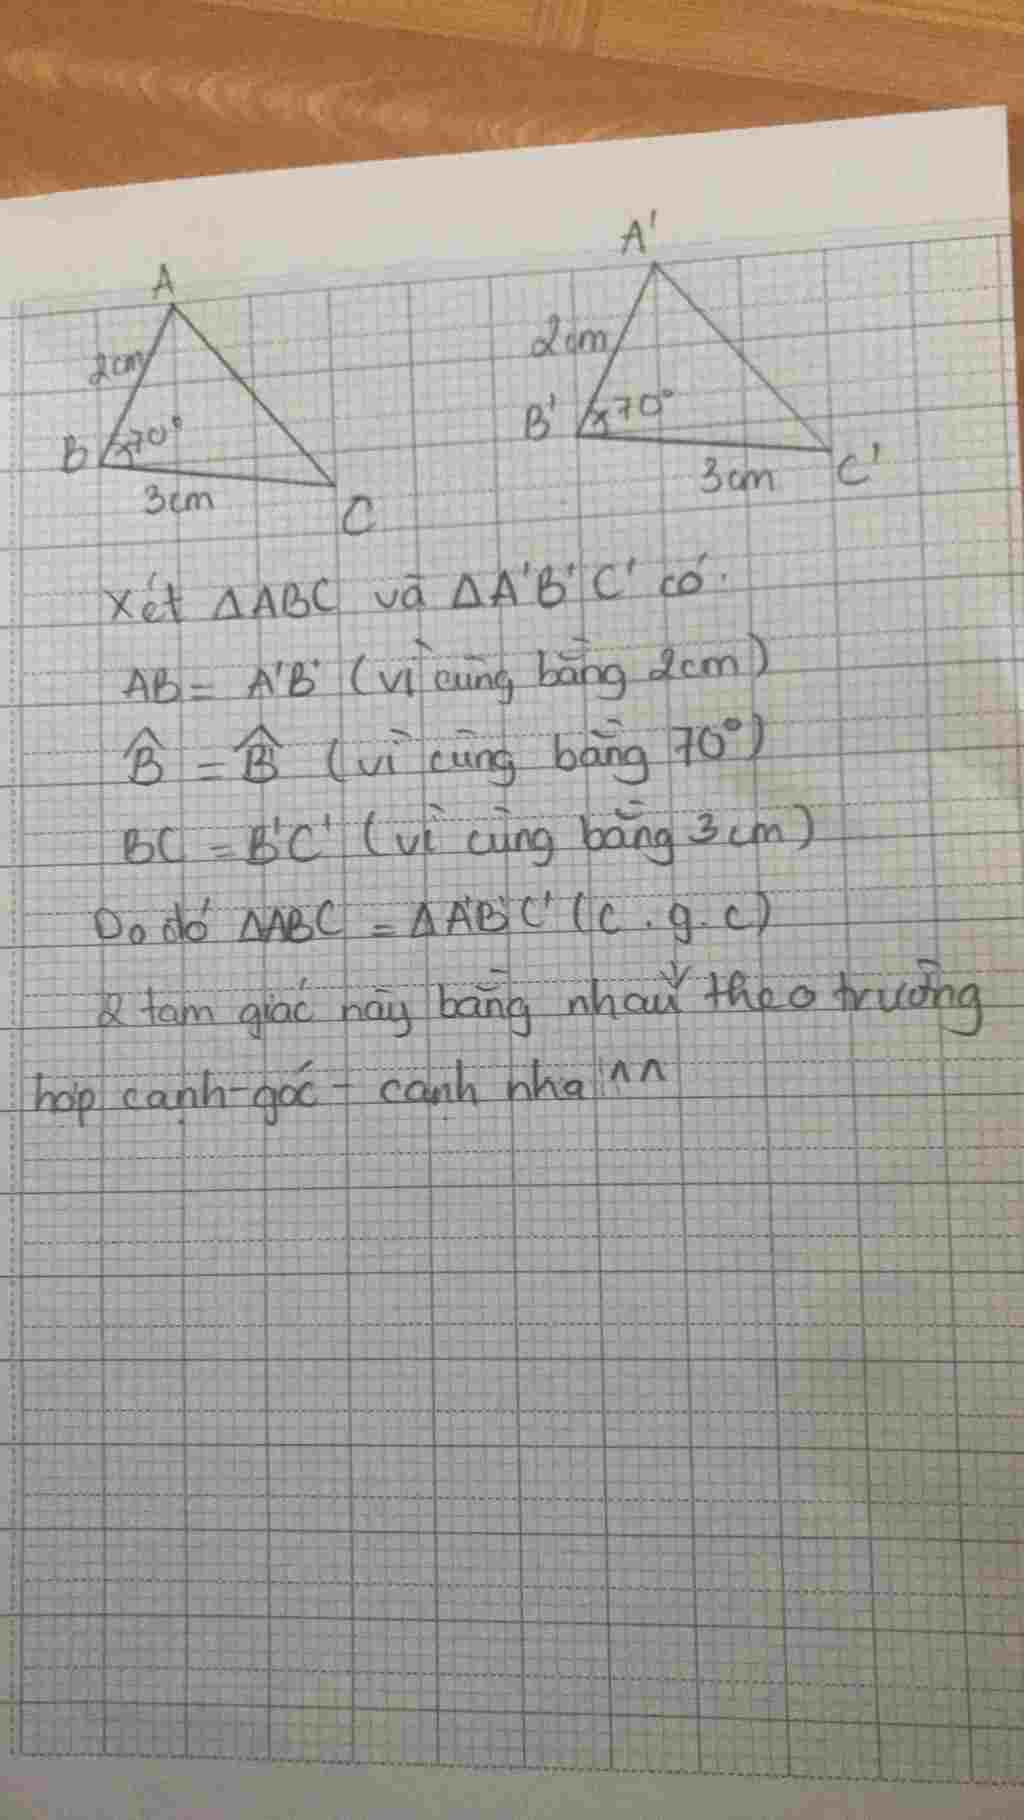 A
A'
2cm
2cm
B
70°
B'
70°
3cm
C
3cm
C'
Xét ΔABC và ΔA'B'C' có:
AB = A'B' (vì cùng bằng 2cm)
B̂ = B̂' (vì cùng bằng 70°)
BC = B'C' (vì cùng bằng 3cm)
Do đó ΔABC = ΔA'B'C' (c.g.c)
2 tam giác này bằng nhau theo trường
hợp cạnh-góc-cạnh nha ^^